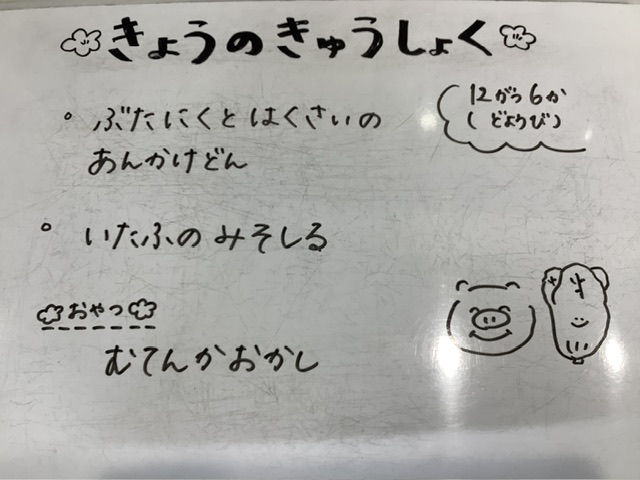 きょうのきゅうしょく
12がつ6か
(どようび)
° ぶたにくとはくさいの
あんかけどん
° いたふのみそしる
おやつ
むてんかおかし